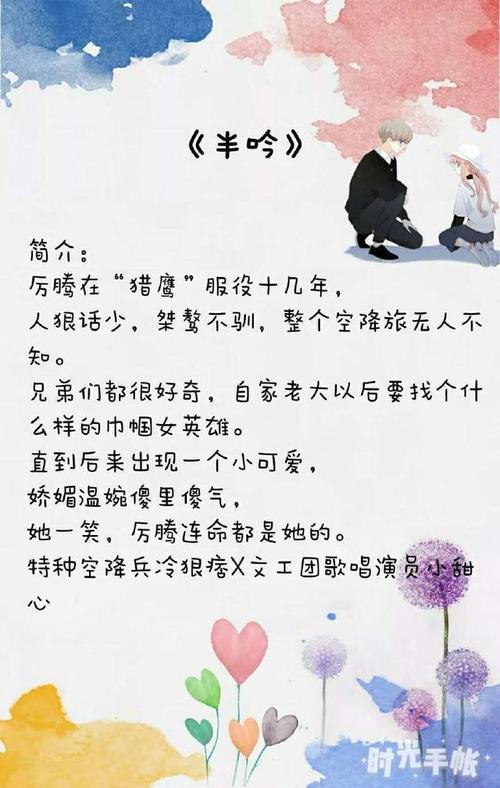 《半吟》
简介：
厉腾在“猎鹰”服役十几年，
人狠话少，桀骜不驯，整个空降旅无人不
知。
兄弟们都很好奇，自家老大以后要找个什
么样的巾帼女英雄。
直到后来出现一个小可爱，
娇媚温婉傻里傻气，
她一笑，厉腾连命都是她的。
特种空降兵冷狠痞X文工团歌唱演员小甜
心
时光手帐